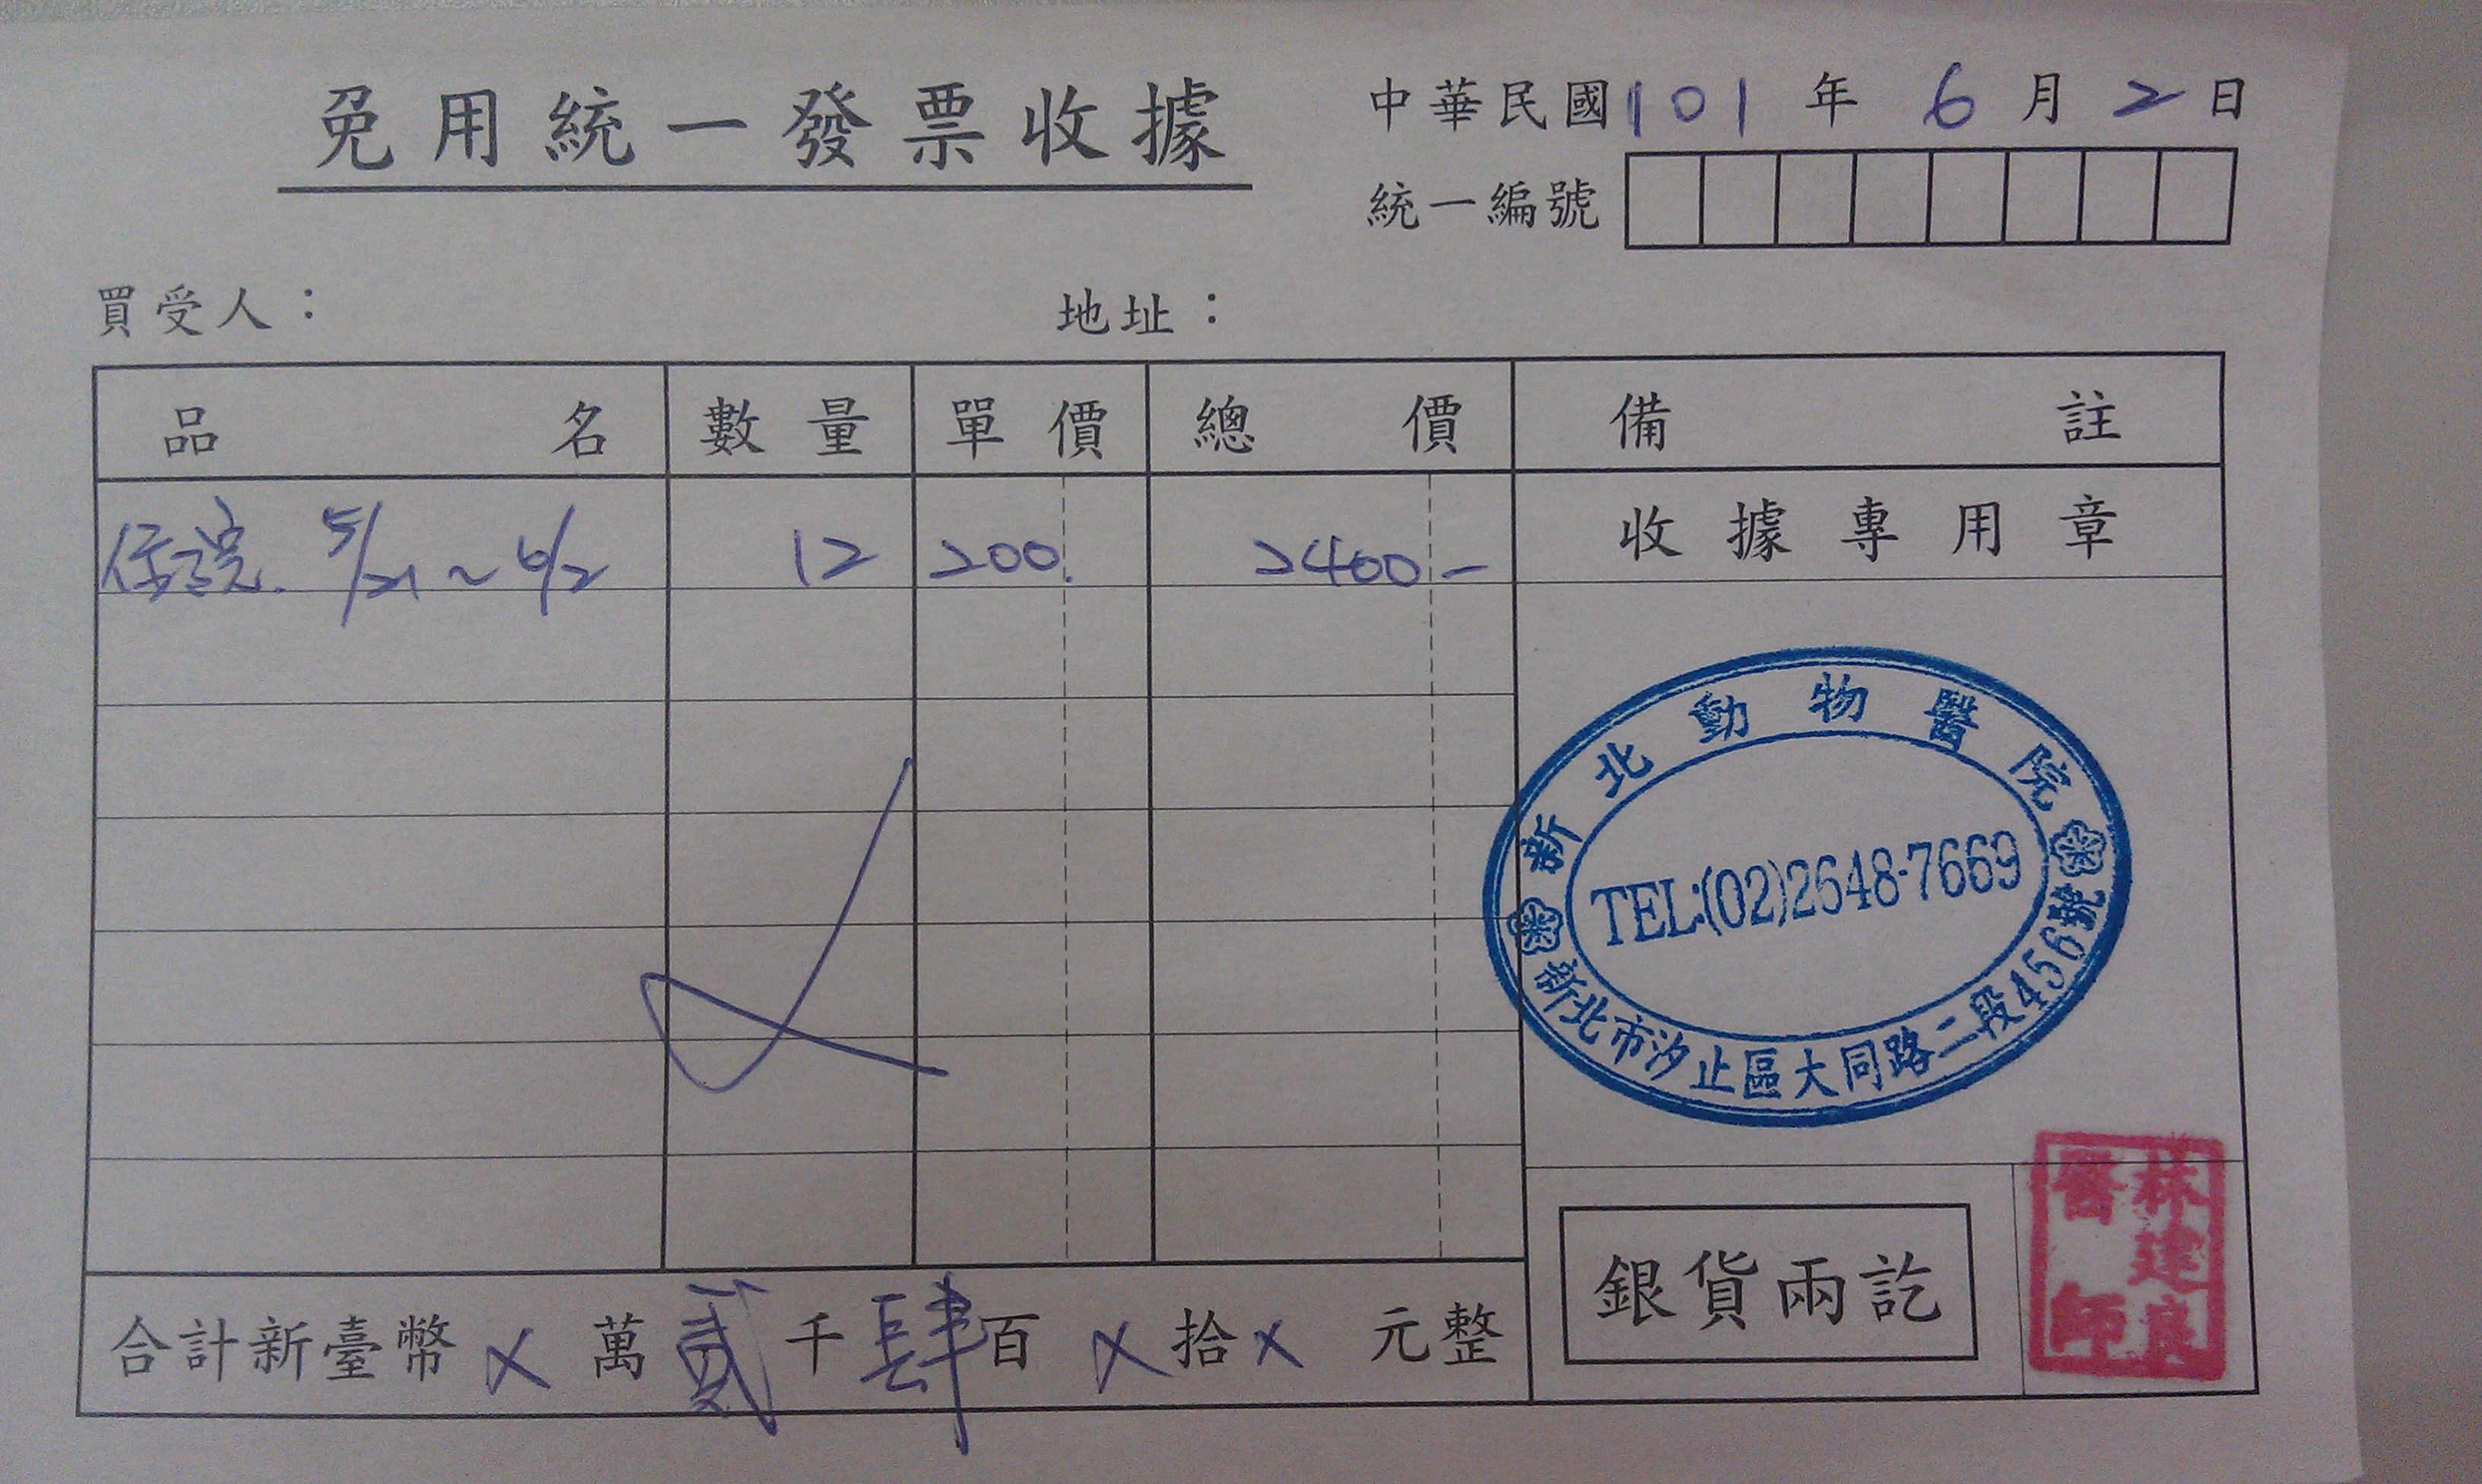 免用統一發票收據
中華民國101年6月2日
統一編號
買受人：
地址：
品名 數量 單價 總價 備註
住院. 5/21~6/2 12 200. 2400-
收據專用章
新北動物醫院
TEL:(02)2648-7669
新北市汐止區大同路二段456號
合計新臺幣X萬貳千肆百X拾X元整
銀貨兩訖
林建良
醫師